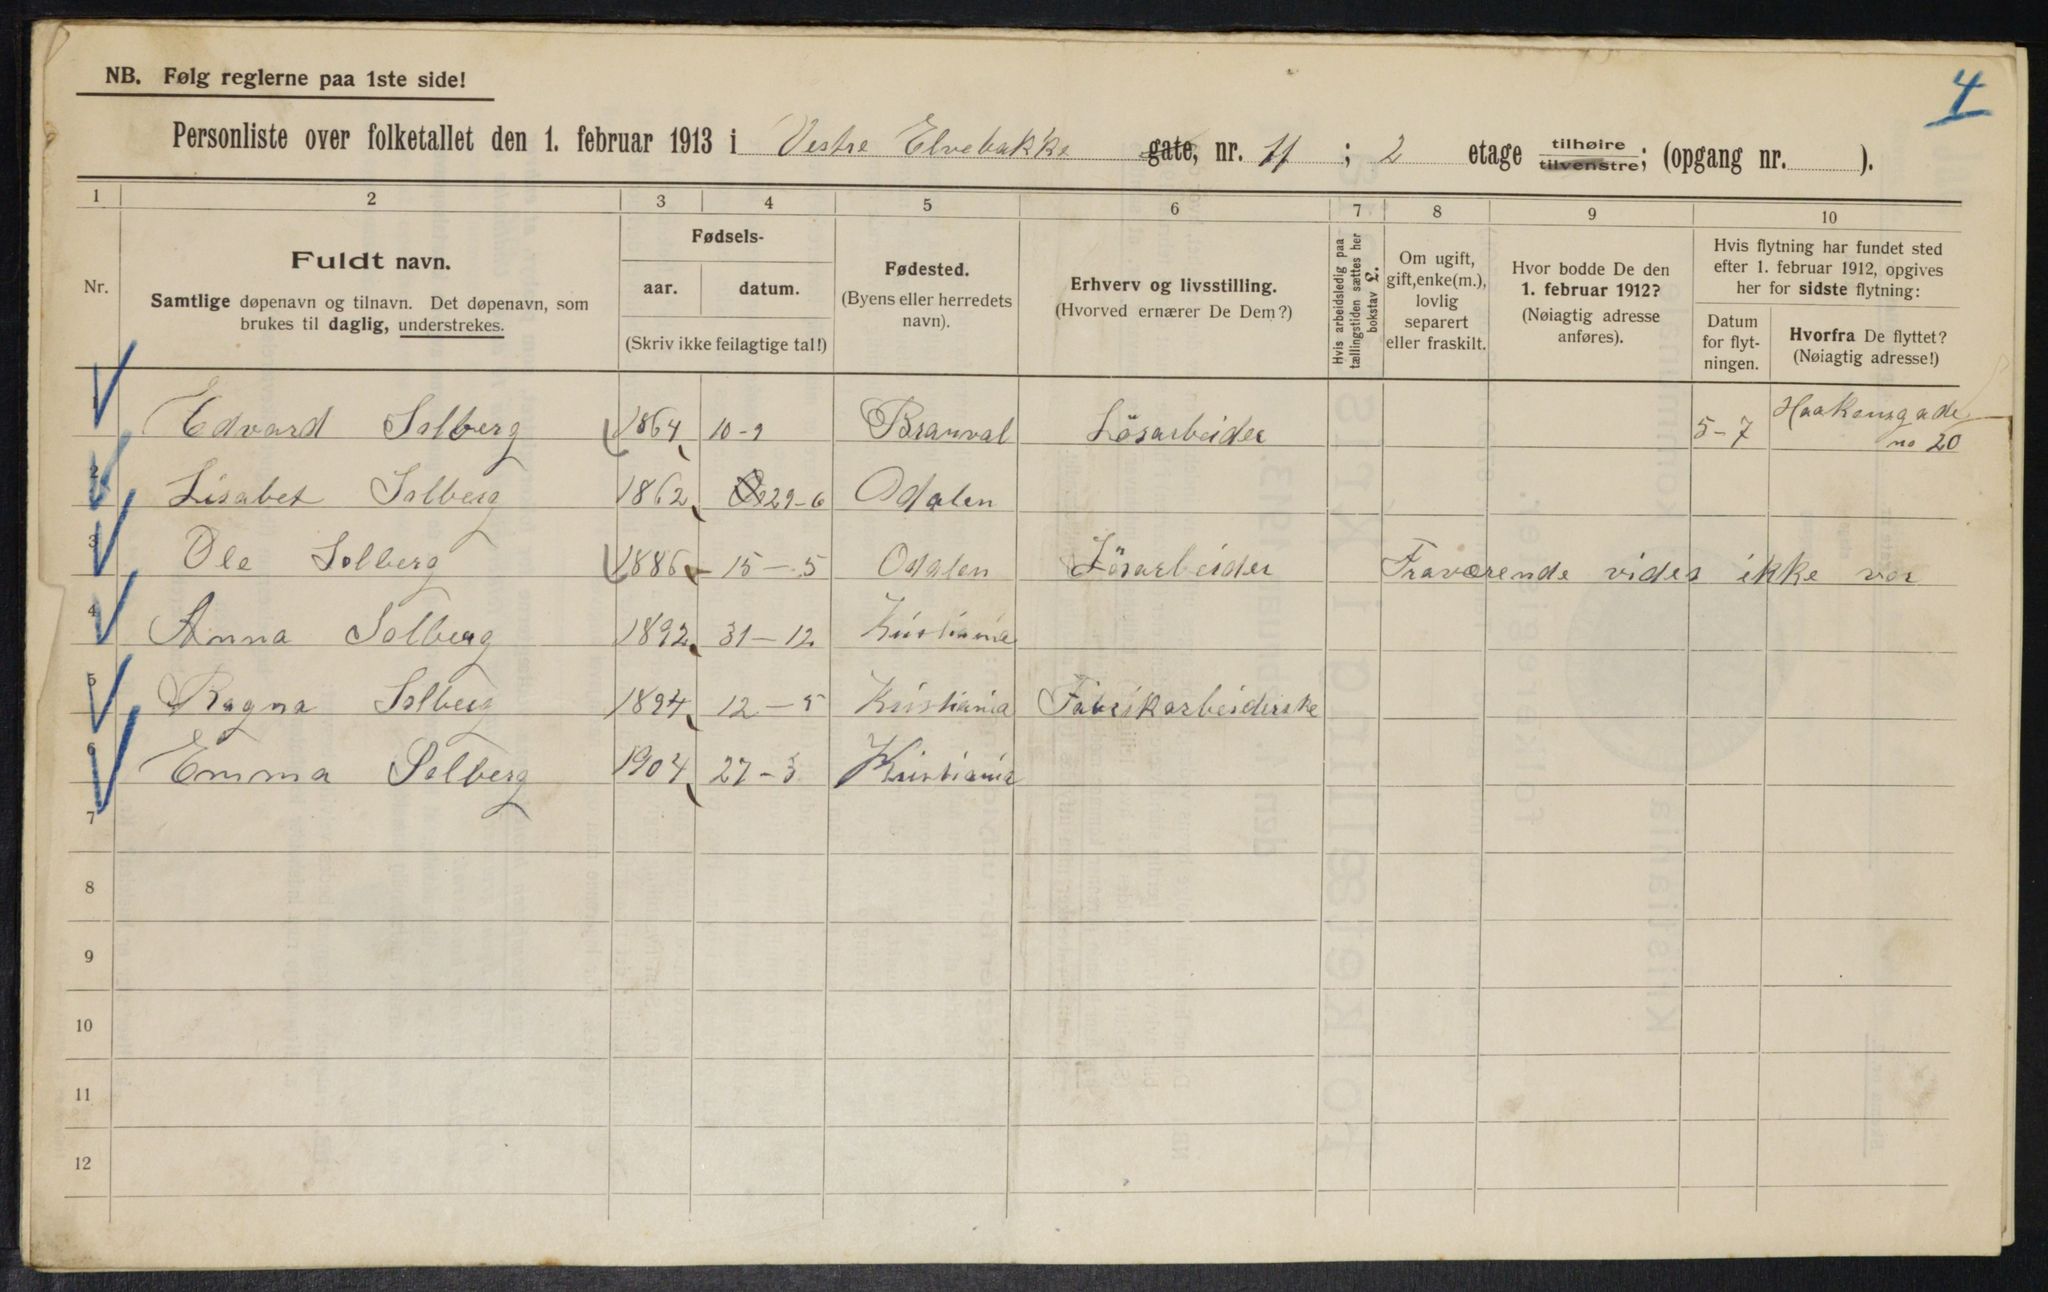 NB. Følg reglerne paa 1ste side!
4
Personliste over folketallet den 1. februar 1913 i Vestre Elvebakke gate, nr. 11 ; 2 etage tilhøire tilvenstre; (opgang nr. ).
1 2 3 4 5 6 7 8 9 10
Nr.
Fuldt navn.
Samtlige døpenavn og tilnavn. Det døpenavn, som
brukes til daglig, understrekes.
Fødsels-
aar. datum.
(Skriv ikke feilagtige tal!)
Fødested.
(Byens eller herredets
navn).
Erhverv og livsstilling.
(Hvorved ernærer De Dem?)
Hvis arbeidsledig paa
tællingstiden sættes her
bokstav L.
Om ugift,
gift, enke(m.),
lovlig
separert
eller fraskilt.
Hvor bodde De den
1. februar 1912?
(Nøiagtig adresse
anføres).
Hvis flytning har fundet sted
efter 1. februar 1912, opgives
her for sidste flytning:
Datum
for flyt-
ningen.
Hvorfra De flyttet?
(Nøiagtig adresse!)
1 Edvard Solberg 1864 10-9 Branval Lösarbeider 5-7 Haakonsgade
no 20
2 Lisabet Solberg 1862 29-6 Odalen
3 Ole Solberg 1886 15-5 Odalen Lösarbeider Fraværende vides ikke vor
4 Anna Solberg 1892 31-12 Kristiania
5 Ragna Solberg 1894 12-5 Kristiania Fabrikarbeiderske
6 Emma Solberg 1904 27-3 Kristiania
7
8
9
10
11
12